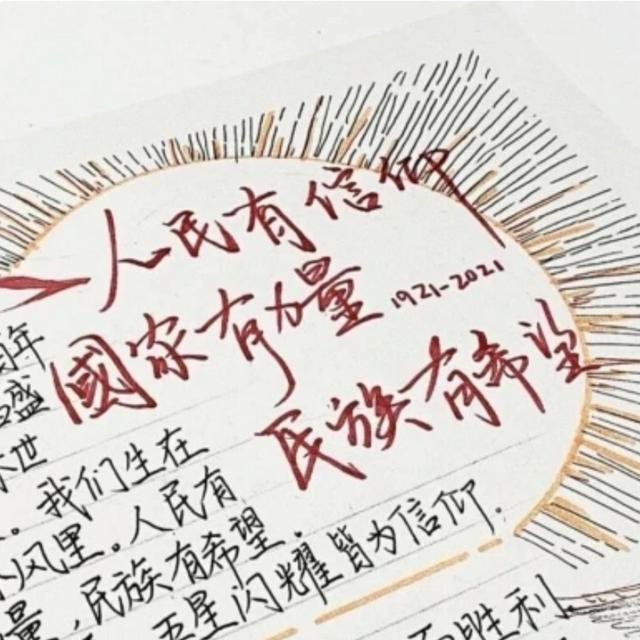 人民有信仰
國家有力量 1921-2021
民族有希望
年
盛
世
。我们生在
风里。人民有
量,民族有希望。
五星闪耀皆为信仰.
胜利